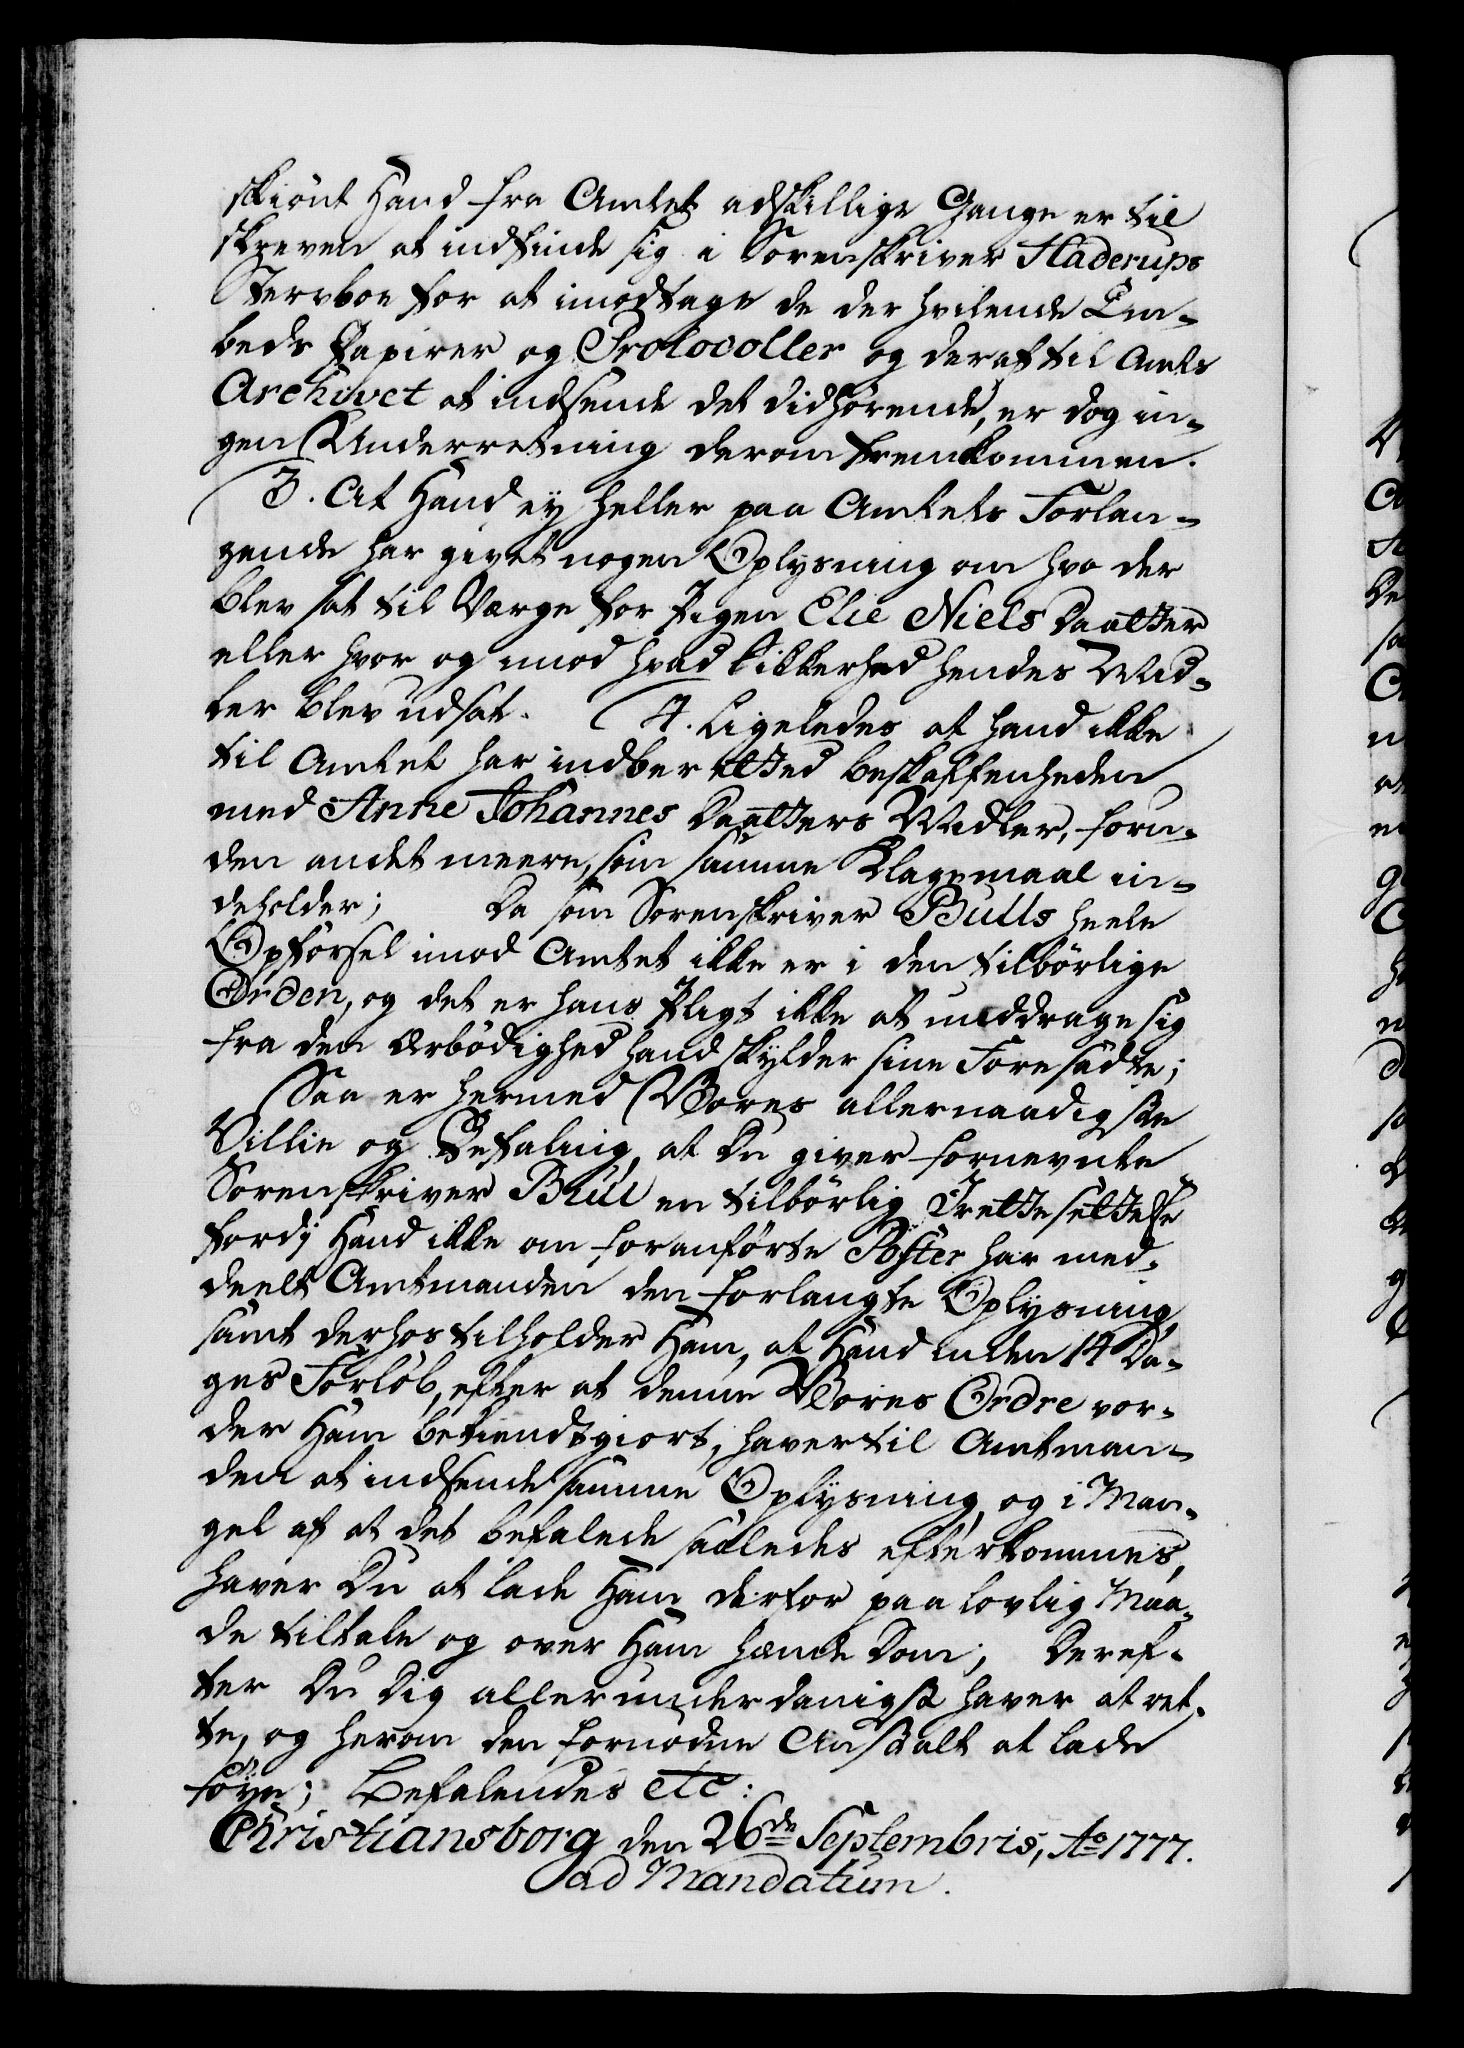 skiönt Hand fra Amtet adskillige Gange er til
skreven at indfinde sig i Sorenskriver Haderups
Stervboe for at imodtage de der hvilende Em-
beds Papirer og Protocoller og deraf til Amts
Archivet at indsende det didhörende, er dog in-
gen Underretning derom fremkommen.
3. At Hand ey heller paa Amtets Forlan-
gende har givet nogen Oplysning om hvo der
blev sat til Værge for Pigen Elie Niels Daatter
eller hvor og imod hvad Sikkerhed hendes Mid-
ler blev udsat. 4. Ligeledes at hand ikke
til Amtet har indberetted beskaffenheden
med Anne Johannes Daatters Midler, foru-
den andet meere, som samme Klagemaal in-
deholder; Da som Sorenskriver Bulls heele
Opförsel imod Amtet ikke er i den tilbörlige
Orden, og det er hans Pligt ikke at unddrage sig
fra den Ærbödighed hand skylder sine Foresadte;
Saa er hermed Vores allernaadigste
Villie og Befaling, at Du giver fornevnte
Sorenskriver Bull en tilbörlig Irettesettelse
fordj Hand ikke om foranförte Poster har med-
deelt Amtmanden den forlangte Oplysning,
samt derhos tilholder Ham, at Hand inden 14 Da-
ges Forlöb, efter at denne Vores Ordre vor-
der Ham bekiendtgiort, haver til Amtman-
den at indsende samme Oplysning, og i Man-
gel af at det befalede saaledes efterkommes,
haver Du at lade Ham derfor paa lovlig Maa-
de tiltale og over Ham hænde Dom; Deref-
ter Du Dig allerunderdanigst haver at ret-
te, og herom den fornödne Anstalt at lade
föye; Befalendes etc:
Christiansborg den 26de Septembris, Ao 1777.
ad Mandatum.